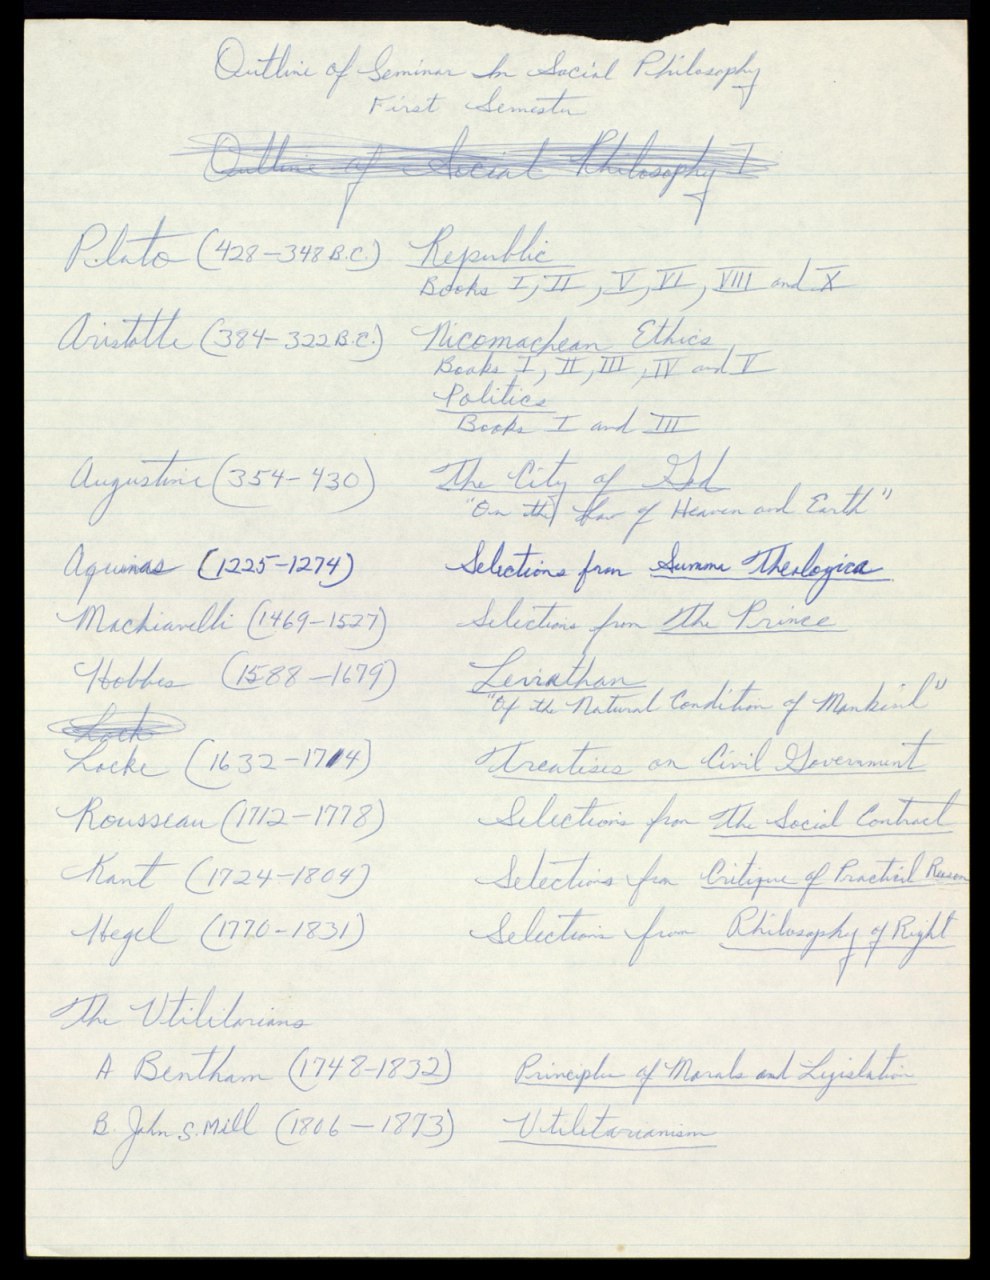 Outline of Seminar In Social Philosophy
First Semester
Outline of Social Philosophy I
Plato (428–348 B.C.) Republic
Books I, II, V, VI, VIII and X
Aristotle (384–322 B.C.) Nicomachean Ethics
Books I, II, III, IV and V
Politics
Books I and III
Augustine (354–430) The City of God
"On the of Heaven and Earth"
Aquinas (1225–1274) Selections from Summa Theologica
Machiavelli (1469–1527) Selections from The Prince
Hobbes (1588–1679) Leviathan
"Of the Natural Condition of Mankind"
Lock
Locke (1632–1714) Treatises on Civil Government
Rousseau (1712–1778) Selections from The Social Contract
Kant (1724–1804) Selections from Critique of Practical Reason
Hegel (1770–1831) Selections from Philosophy of Right
The Utilitarians
A Bentham (1748–1832) Principles of Morals and Legislation
B. John S. Mill (1806–1873) Utilitarianism